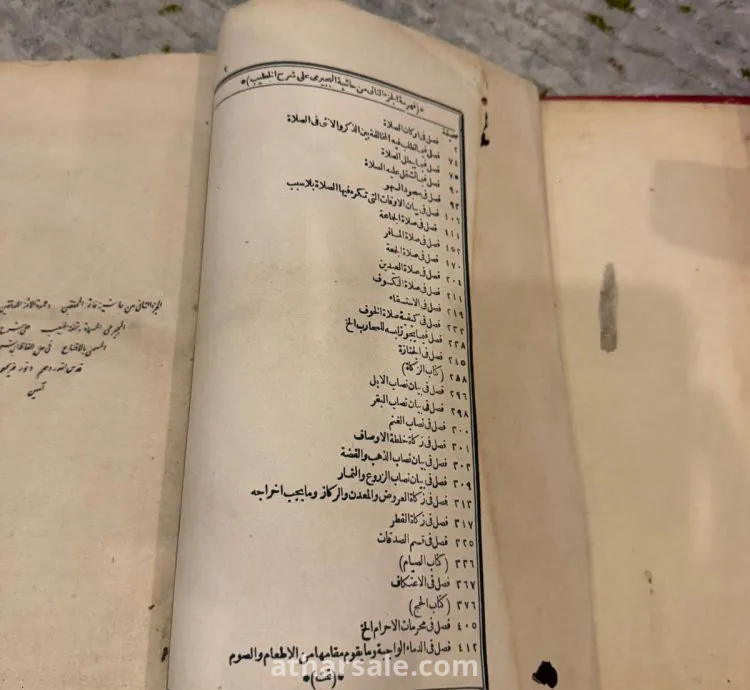 ٢
*(فهرسة الجزء الثانى من حاشية البجيرمى على شرح الخطيب)*
صحيفة
٢ فصل فى اركان الصلاة
٧٤ فصل فيما يطلب فيه المخالفة بين الذكر والانثى فى الصلاة
٧٥ فصل فيما يبطل الصلاة
٩٠ فصل فيما تشتمل عليه الصلاة
٩٣ فصل فى سجود السهو
١٠٦ فصل فى بيان الاوقات التى تكره فيها الصلاة بلا سبب
١١١ فصل فى صلاة الجماعة
١٥٢ فصل فى صلاة المسافر
١٧٠ فصل فى صلاة الجمعة
٢٠٤ فصل فى صلاة العيدين
٢١١ فصل فى صلاة الكسوف
٢١٩ فصل فى الاستسقاء
٢٢٢ فصل فى كيفية صلاة الخوف
٢٢٨ فصل فيما يجوز لبسه للمحارب الخ
٢٤٥ فصل فى الجنازة
٢٥٨ (كتاب الزكاة)
٢٩٦ فصل فى بيان نصاب الابل
٢٩٨ فصل فى بيان نصاب البقر
٣٠٠ فصل فى نصاب الغنم
٣٠١ فصل فى زكاة خلطة الاوصاف
٣٠٣ فصل فى بيان نصاب الذهب والفضة
٣٠٩ فصل فى بيان نصاب الزروع والثمار
٣١٣ فصل فى زكاة العروض والمعدن والركاز وما يجب اخراجه
٣١٧ فصل فى زكاة الفطر
٣٢٥ فصل فى قسم الصدقات
٣٣٦ (كتاب الصيام)
٣٦٧ فصل فى الاعتكاف
٣٧٦ (كتاب الحج)
٤٠٥ فصل فى محرمات الاحرام الخ
٤١٢ فصل فى الدماء الواجبة وما يقوم مقامها من الاطعام والصوم
*(تمت)*
الجزء الثانى من حاشية خاتمة المحققين وعمدة
البجيرمى المسماة بتحفة الحبيب على شرح
المسمى بالاقناع فى حل الفاظ ابى
آمين
atharsale.com